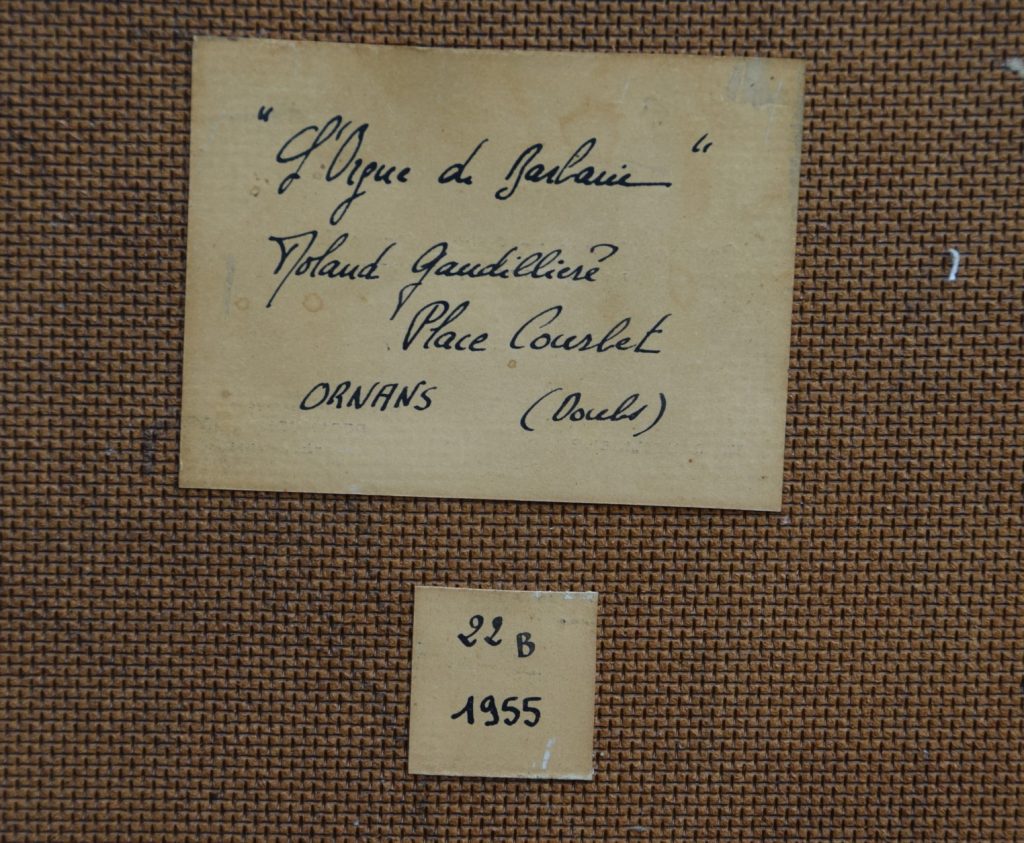 "L'Orgue de Barbarie"
Roland Gaudillière
Place Courbet
ORNANS (Doubs)
22 B
1955